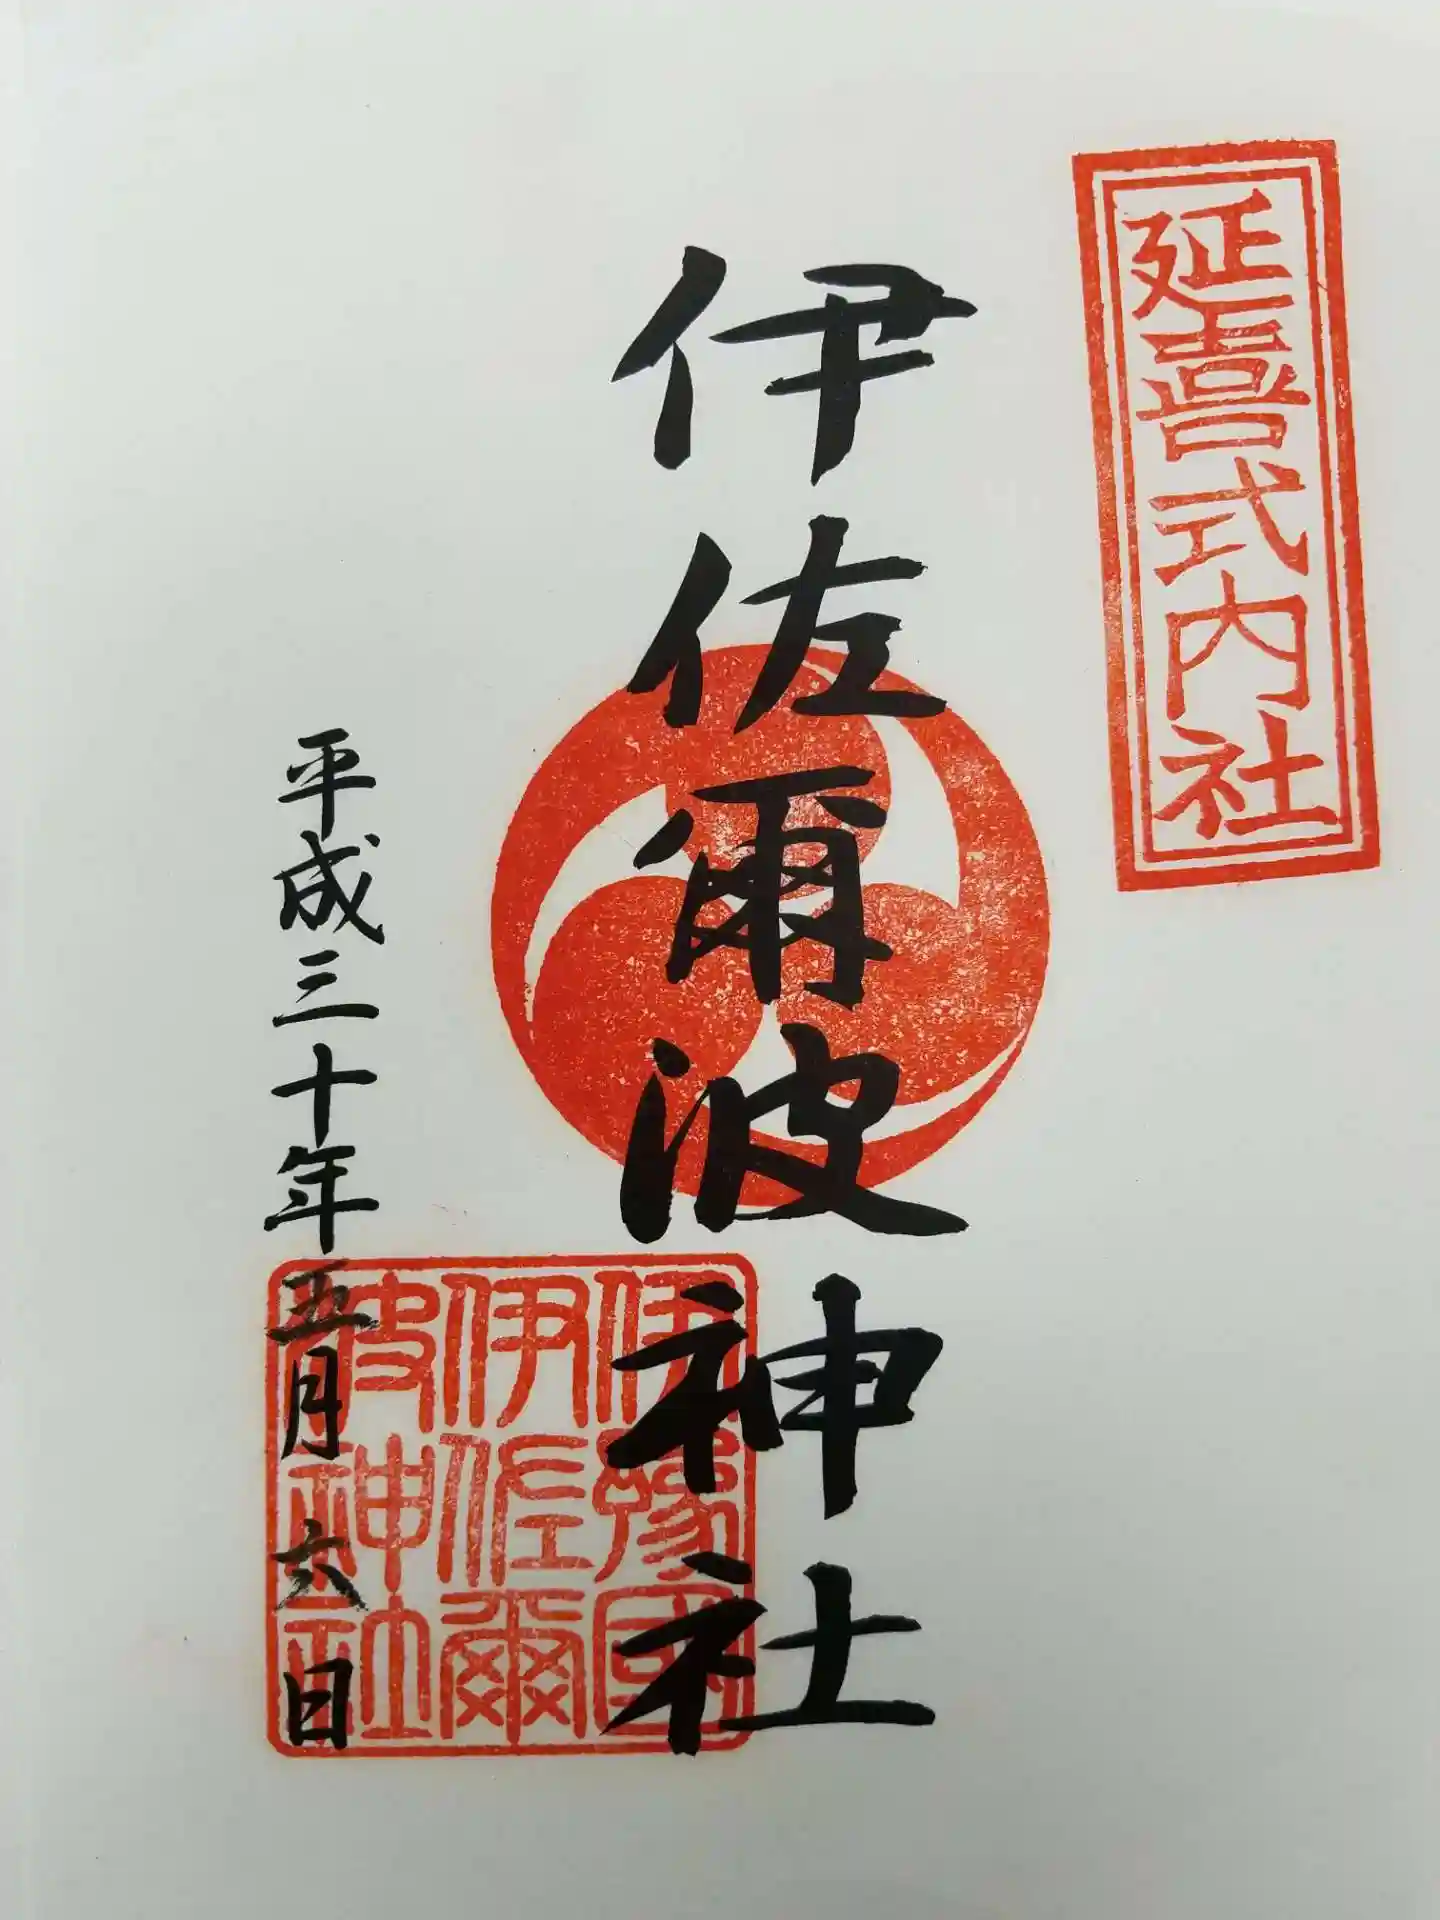 延喜式内社
伊佐爾波神社
平成三十年五月六日
伊豫國
伊佐爾
波神社